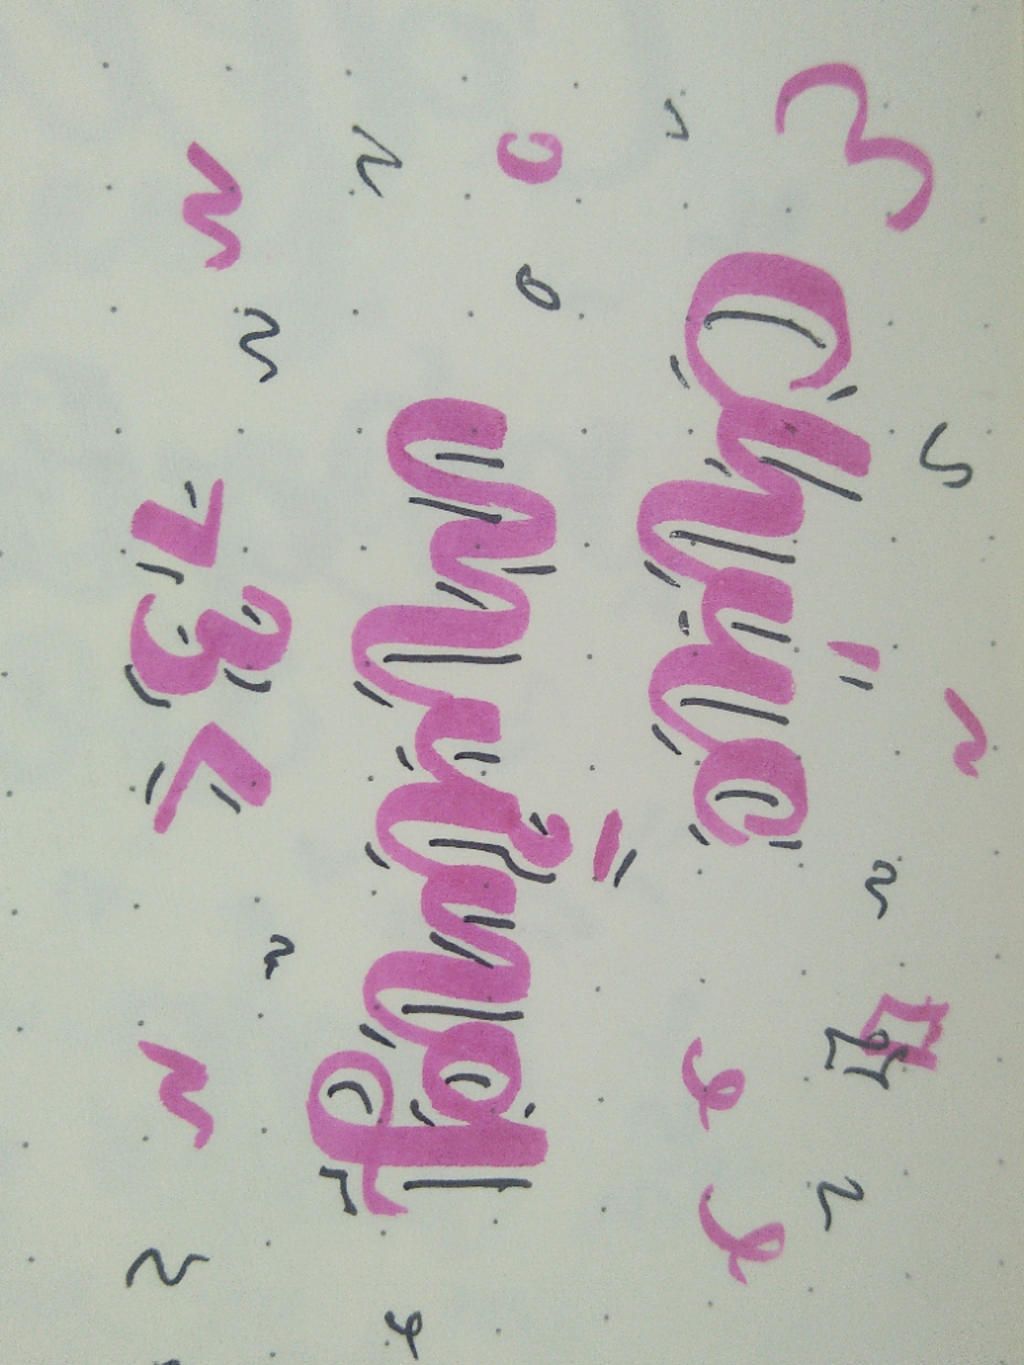 Chúc
mừng
>3<